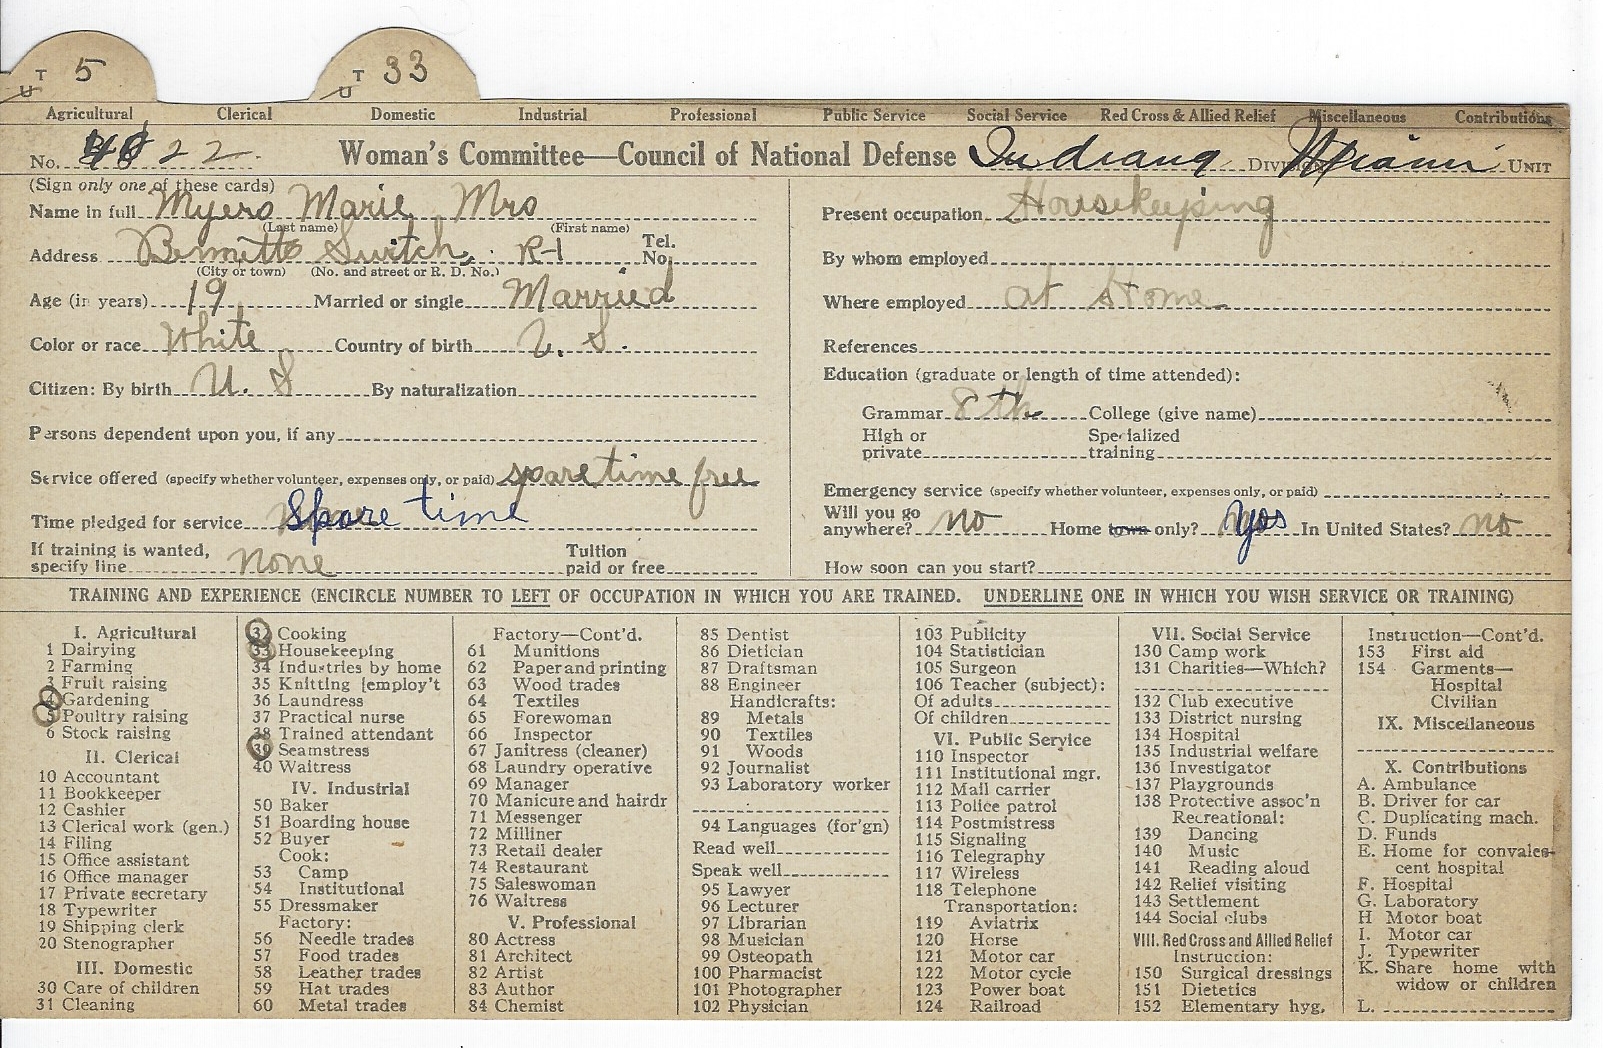 T U 5 T U 33
Agricultural Clerical Domestic Industrial Professional Public Service Social Service Red Cross & Allied Relief Miscellaneous Contributions
No. 22 Woman's Committee—Council of National Defense Indiana Division Miami Unit
(Sign only one of these cards)
Name in full Myers Marie Mrs
(Last name) (First name)
Address Bennetts Switch, R-1 Tel. No.
(City or town) (No. and street or R. D. No.)
Age (in years) 19 Married or single Married
Color or race White Country of birth U. S.
Citizen: By birth U. S By naturalization
Persons dependent upon you, if any
Service offered (specify whether volunteer, expenses only, or paid) spare time free
Time pledged for service Spare time
If training is wanted, specify line none Tuition paid or free
Present occupation Housekeeping
By whom employed
Where employed at Home
References
Education (graduate or length of time attended):
Grammar 8th College (give name)
High or private Specialized training
Emergency service (specify whether volunteer, expenses only, or paid)
Will you go anywhere? no Home town only? yes In United States? no
How soon can you start?
TRAINING AND EXPERIENCE (ENCIRCLE NUMBER TO LEFT OF OCCUPATION IN WHICH YOU ARE TRAINED. UNDERLINE ONE IN WHICH YOU WISH SERVICE OR TRAINING)
I. Agricultural
1 Dairying
2 Farming
3 Fruit raising
4 Gardening
5 Poultry raising
6 Stock raising
II. Clerical
10 Accountant
11 Bookkeeper
12 Cashier
13 Clerical work (gen.)
14 Filing
15 Office assistant
16 Office manager
17 Private secretary
18 Typewriter
19 Shipping clerk
20 Stenographer
III. Domestic
30 Care of children
31 Cleaning
32 Cooking
33 Housekeeping
34 Industries by home
35 Knitting [employ't
36 Laundress
37 Practical nurse
38 Trained attendant
39 Seamstress
40 Waitress
IV. Industrial
50 Baker
51 Boarding house
52 Buyer
Cook:
53 Camp
54 Institutional
55 Dressmaker
Factory:
56 Needle trades
57 Food trades
58 Leather trades
59 Hat trades
60 Metal trades
Factory—Cont'd.
61 Munitions
62 Paper and printing
63 Wood trades
64 Textiles
65 Forewoman
66 Inspector
67 Janitress (cleaner)
68 Laundry operative
69 Manager
70 Manicure and hairdr
71 Messenger
72 Milliner
73 Retail dealer
74 Restaurant
75 Saleswoman
76 Waitress
V. Professional
80 Actress
81 Architect
82 Artist
83 Author
84 Chemist
85 Dentist
86 Dietician
87 Draftsman
88 Engineer
Handicrafts:
89 Metals
90 Textiles
91 Woods
92 Journalist
93 Laboratory worker
94 Languages (for'gn)
Read well
Speak well
95 Lawyer
96 Lecturer
97 Librarian
98 Musician
99 Osteopath
100 Pharmacist
101 Photographer
102 Physician
103 Publicity
104 Statistician
105 Surgeon
106 Teacher (subject):
Of adults
Of children
VI. Public Service
110 Inspector
111 Institutional mgr.
112 Mail carrier
113 Police patrol
114 Postmistress
115 Signaling
116 Telegraphy
117 Wireless
118 Telephone
Transportation:
119 Aviatrix
120 Horse
121 Motor car
122 Motor cycle
123 Power boat
124 Railroad
VII. Social Service
130 Camp work
131 Charities—Which?
132 Club executive
133 District nursing
134 Hospital
135 Industrial welfare
136 Investigator
137 Playgrounds
138 Protective assoc'n
Recreational:
139 Dancing
140 Music
141 Reading aloud
142 Relief visiting
143 Settlement
144 Social clubs
VIII. Red Cross and Allied Relief
Instruction:
150 Surgical dressings
151 Dietetics
152 Elementary hyg.
Instruction—Cont'd.
153 First aid
154 Garments—
Hospital
Civilian
IX. Miscellaneous
X. Contributions
A. Ambulance
B. Driver for car
C. Duplicating mach.
D. Funds
E. Home for convales-
cent hospital
F. Hospital
G. Laboratory
H Motor boat
I. Motor car
J. Typewriter
K. Share home with
widow or children
L.